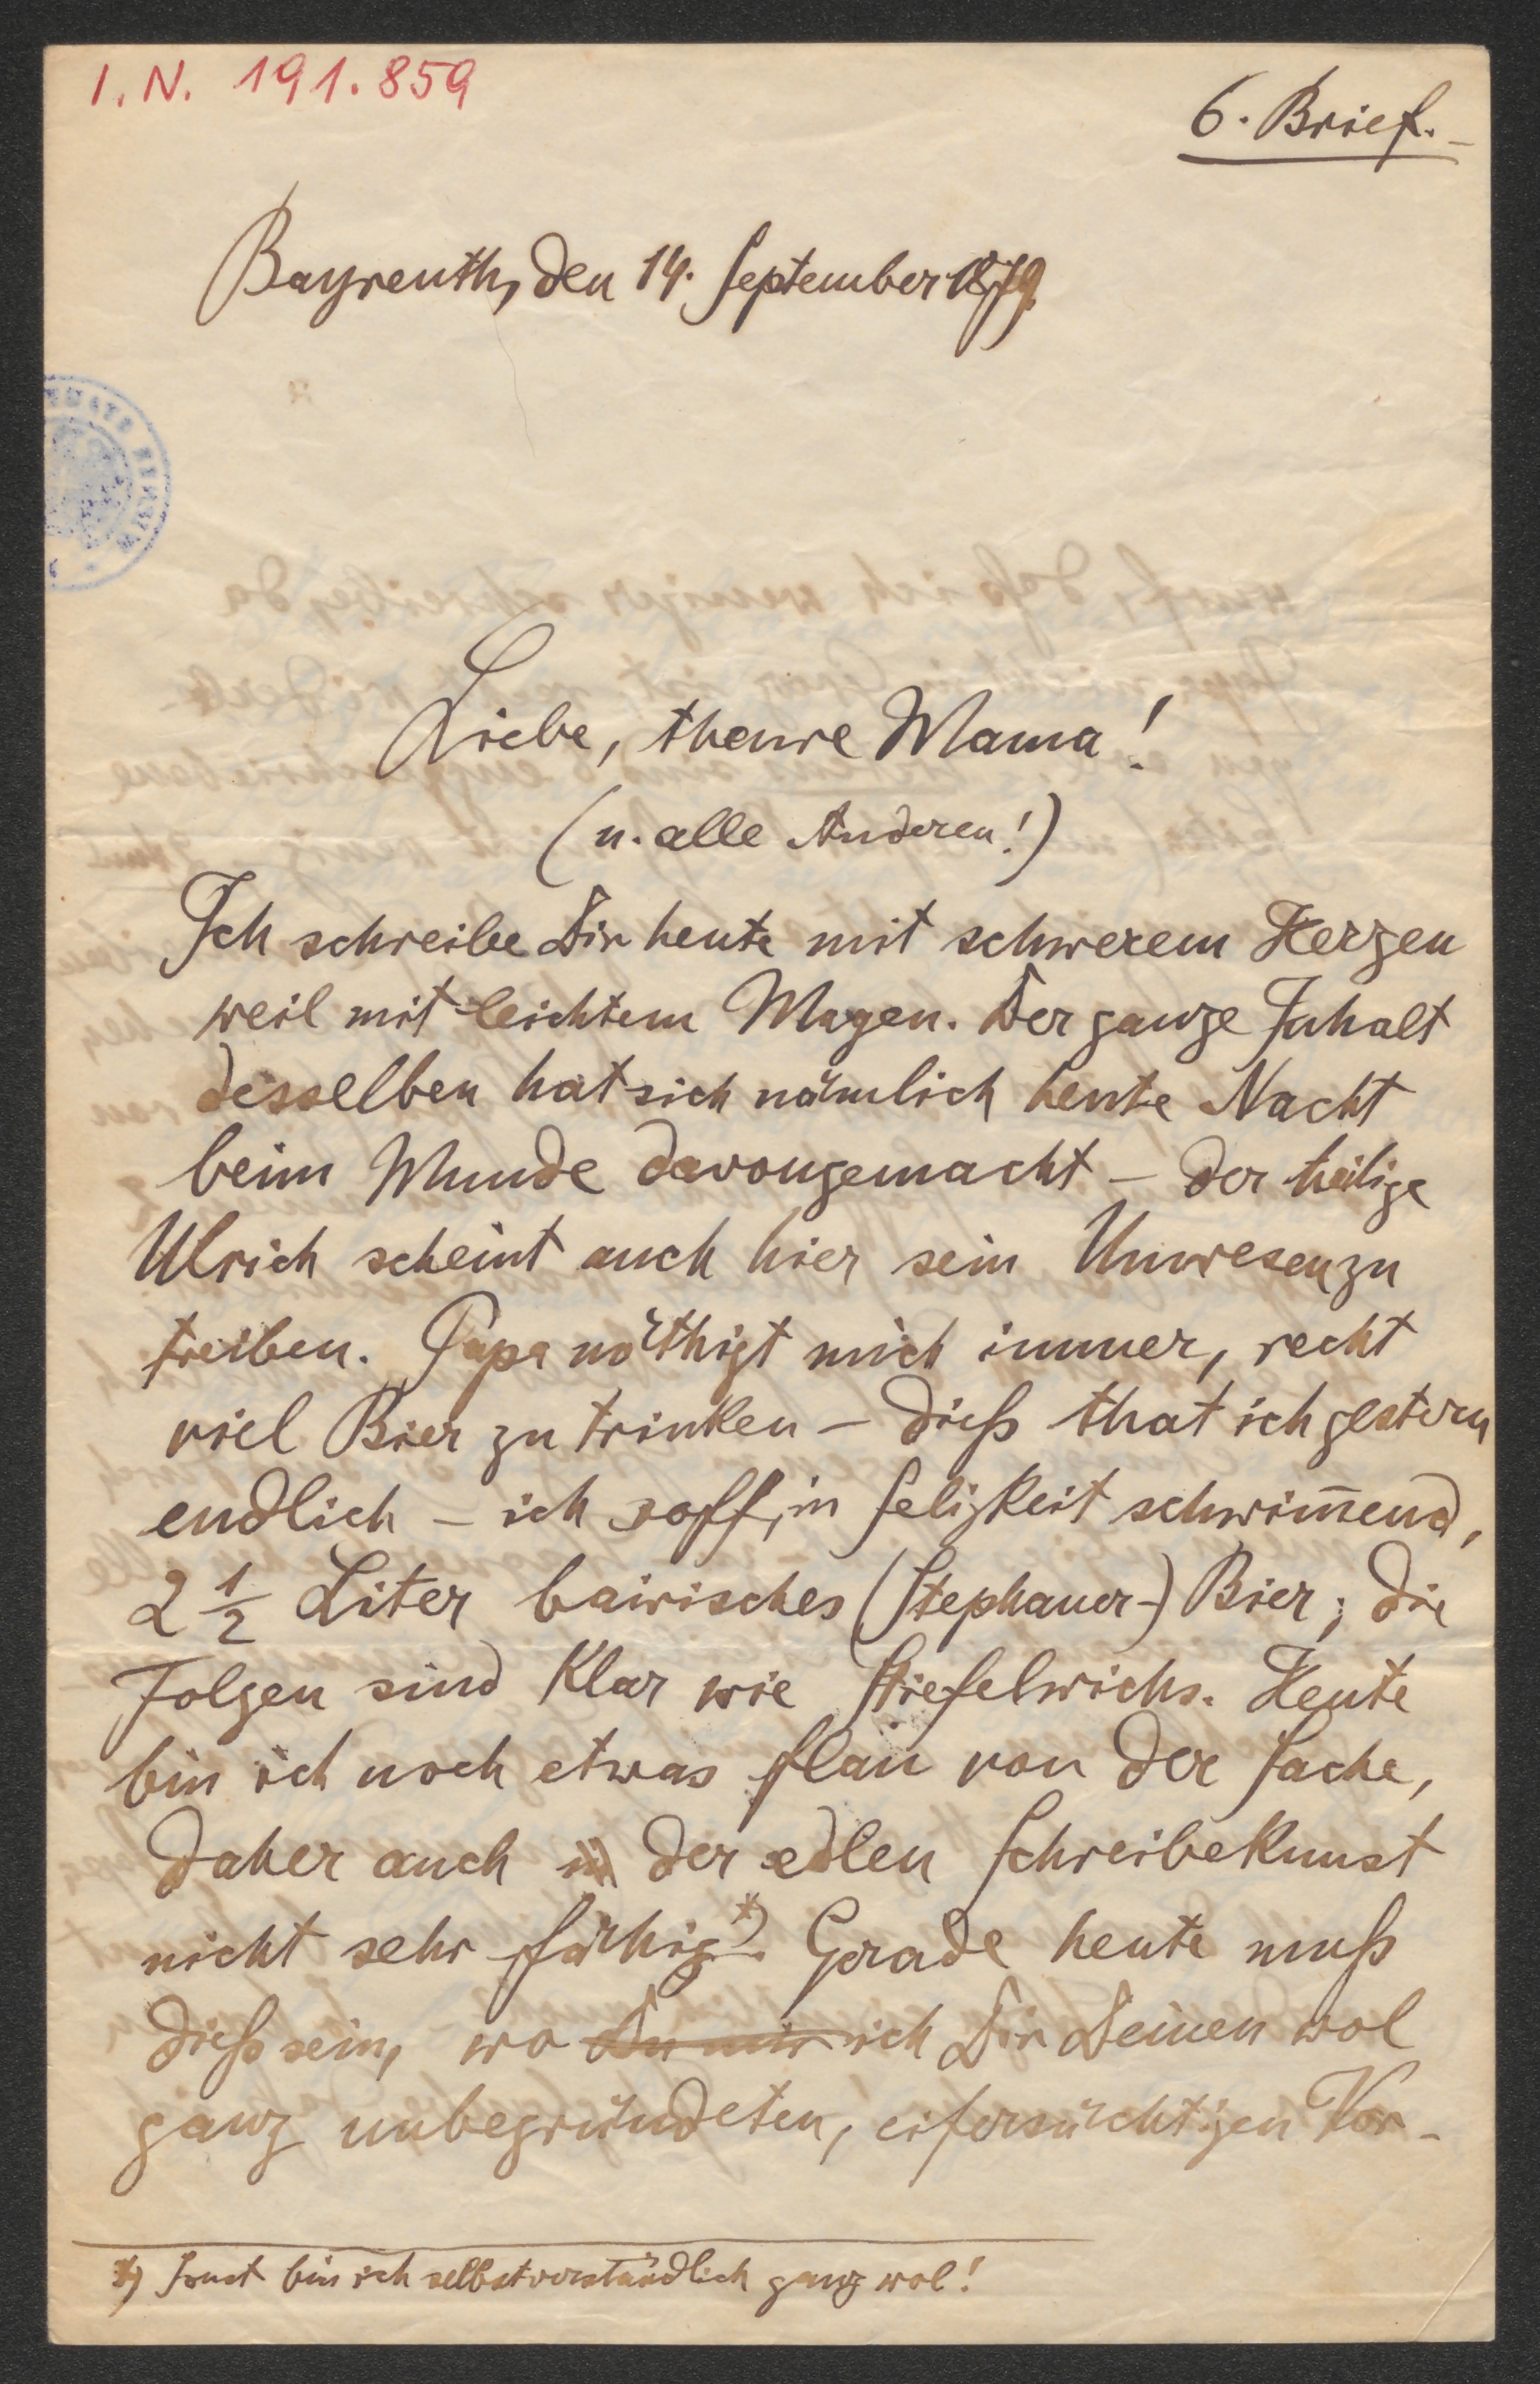 I. N. 191.859
6. Brief. –
Bayreuth, den 14. September 1879.
Liebe, theure Mama!
(u. alle Anderen!)
Ich schreibe Dir heute mit schwerem Herzen
weil mit leichtem Magen. Der ganze Inhalt
desselben hat sich nämlich heute Nacht
beim Munde davongemacht – der heilige
Ulrich scheint auch hier sein Unwesen zu
treiben. Papa nöthigt mich immer, recht
viel Bier zu trinken – dieß that ich gestern
endlich – ich soff, in Seligkeit schwim̅end,
2 1/2 Liter bairisches (Stephauer-) Bier; die
Folgen sind klar wie Stiefelwichs. Heute
bin ich noch etwas flau von der Sache,
daher auch in der edlen Schreibekunst
nicht sehr fähig*). Gerade heute muß
dieß sein, wo Du mir ich Dir Deinen wol
ganz unbegründeten, eifersüchtigen Vor-
*) Sonst bin ich selbstverständlich ganz wol!